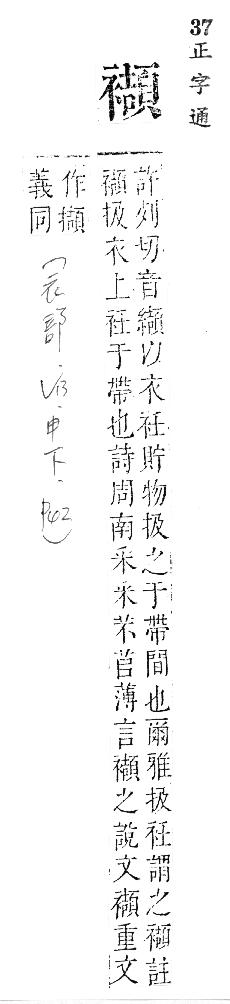 37正字通
襭
許列切音纈以衣衽貯物扱之于帶間也爾雅扱衽謂之襭註
襭扱衣上衽于帶也詩周南采采芣苢薄言襭之說文襭重文
作擷
義同
(衣部.申下.P42)